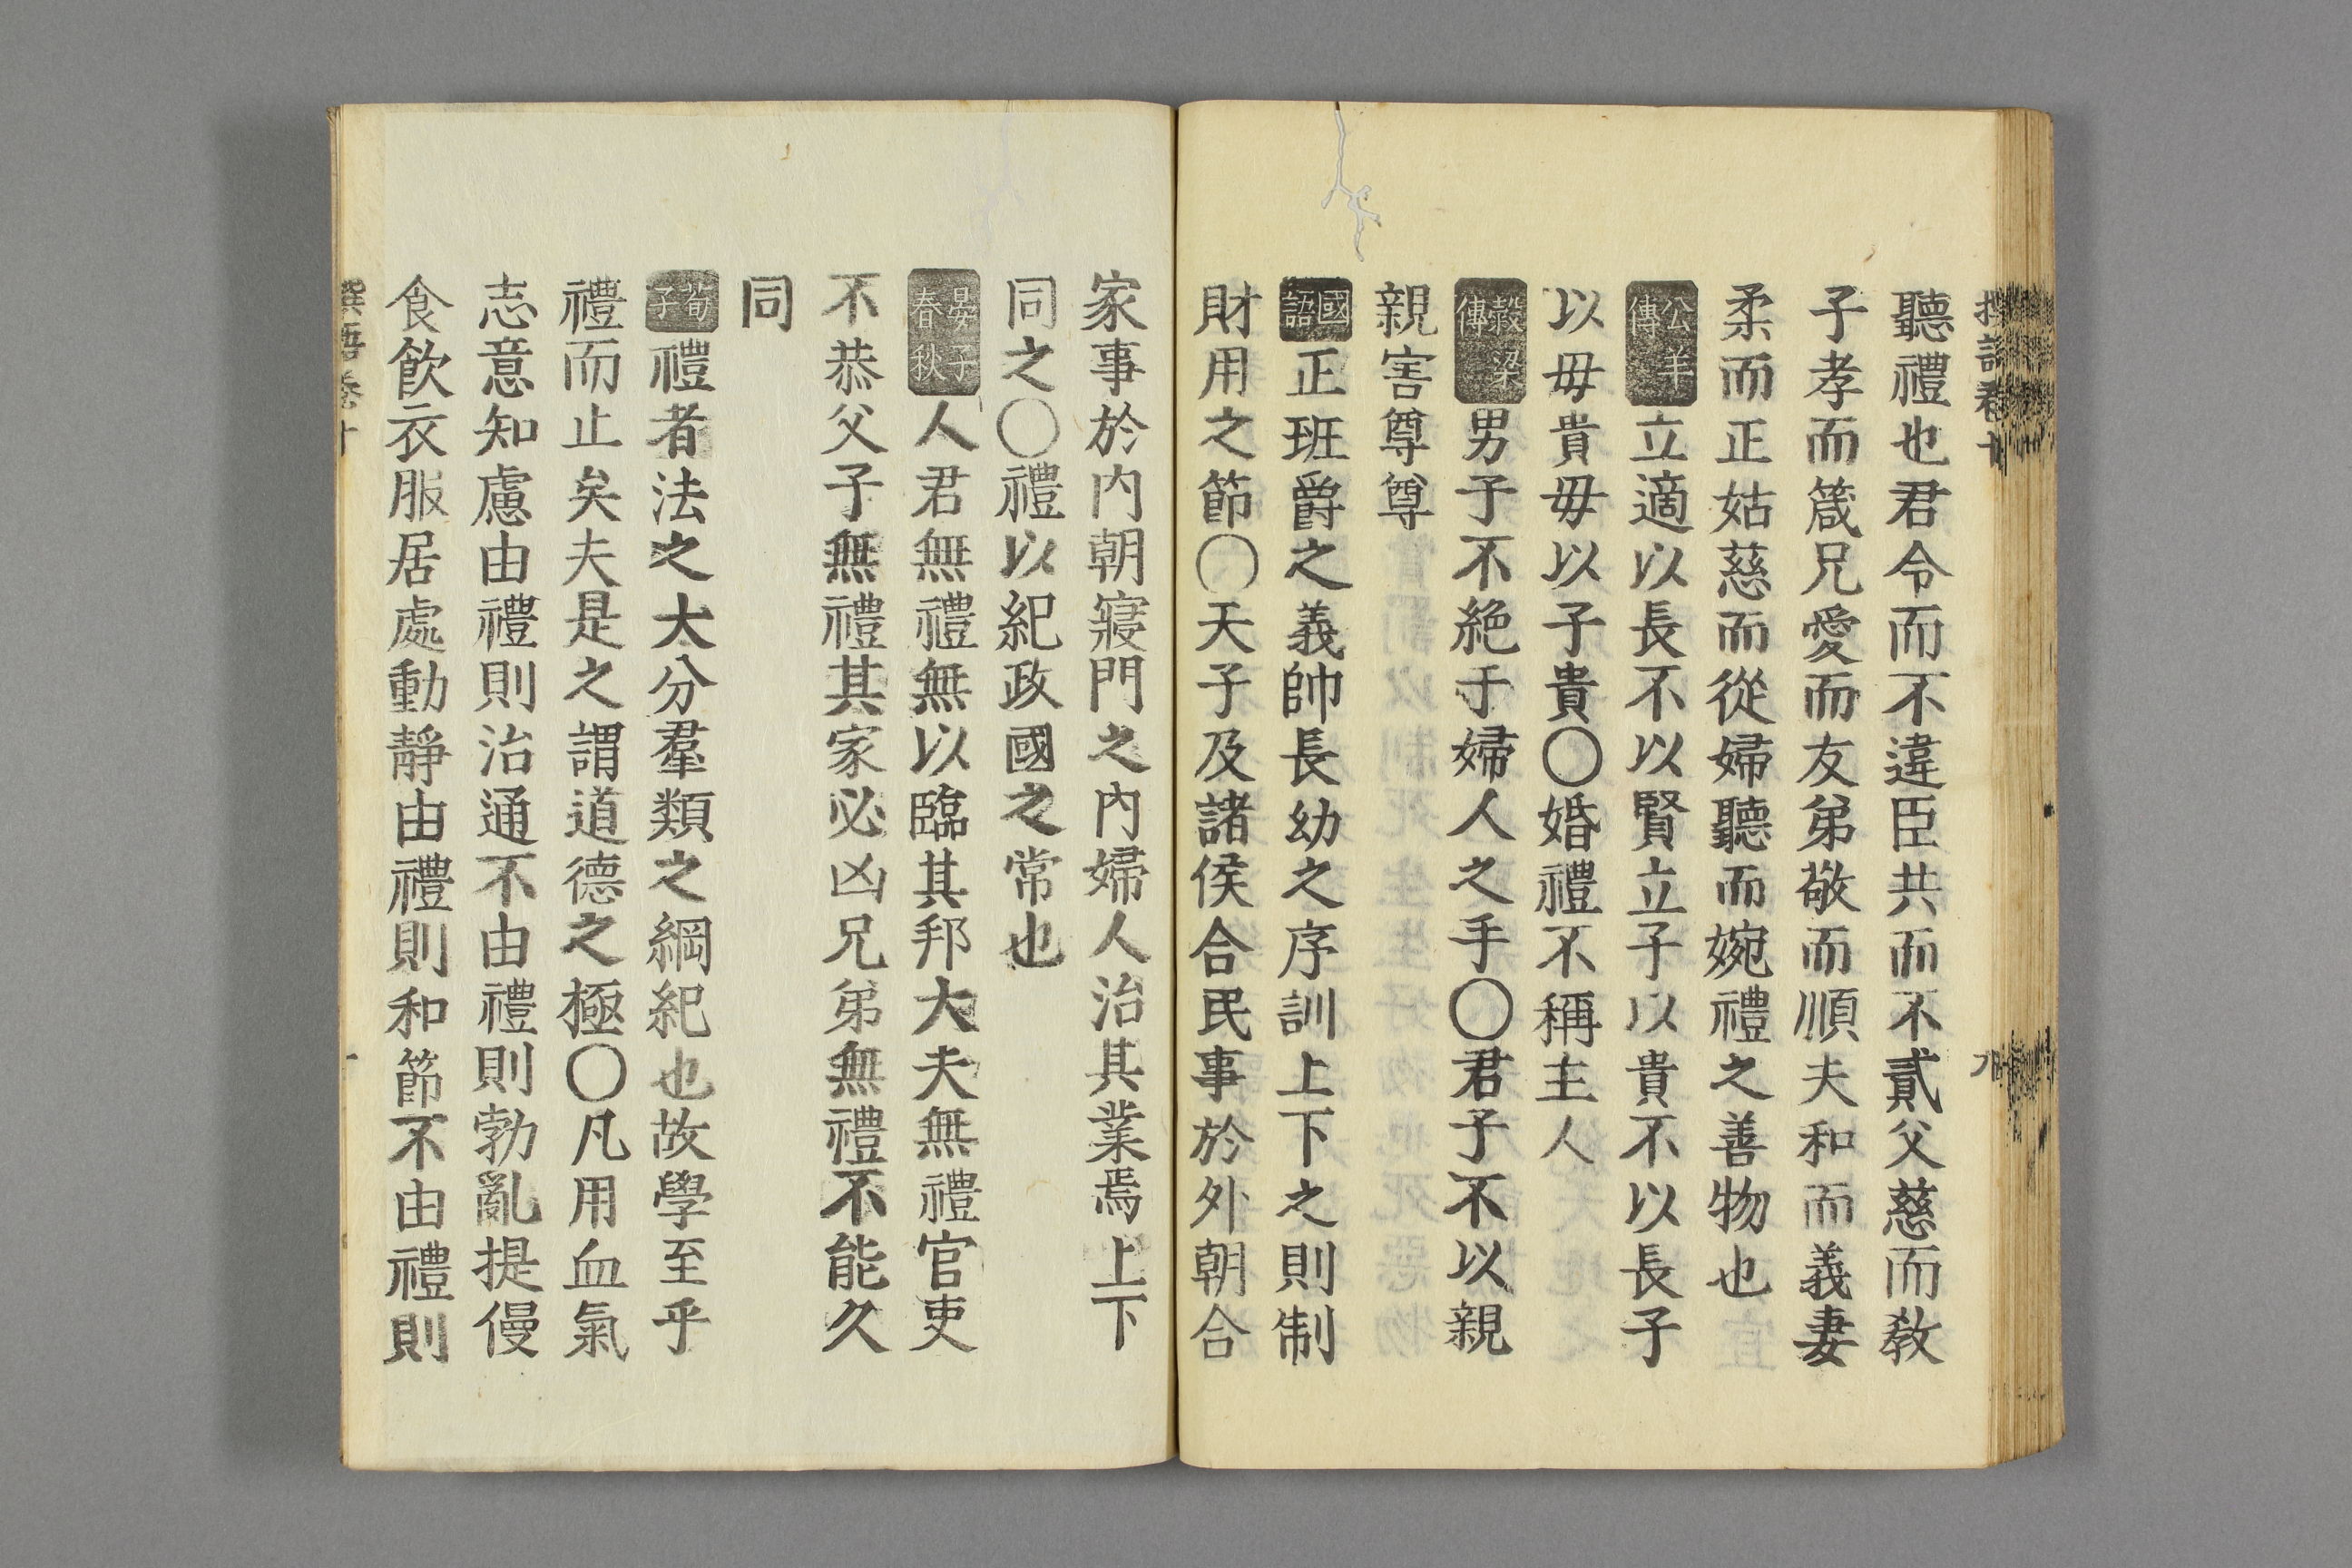 聽禮也君令而不違臣共而不貳父慈而敎
子孝而箴兄愛而友弟敬而順夫和而義妻
柔而正姑慈而從婦聽而婉禮之善物也
公羊傳立適以長不以賢立子以貴不以長子
以毋貴毋以子貴〇婚禮不稱主人
穀梁傳男子不絶于婦人之手〇君子不以親
親害尊尊
國語正班爵之義帥長幼之序訓上下之則制
財用之節〇天子及諸侯合民事於外朝合
家事於内朝寢門之內婦人治其業焉上下
同之〇禮以紀政國之常也
晏子春秋人君無禮無以臨其邦大夫無禮官吏
不恭父子無禮其家必凶兄弟無禮不能久
同
荀子禮者法之大分羣類之綱紀也故學至乎
禮而止矣夫是之謂道德之極〇凡用血氣
志意知慮由禮則治通不由禮則勃亂提僈
食飲衣服居處動靜由禮則和節不由禮則